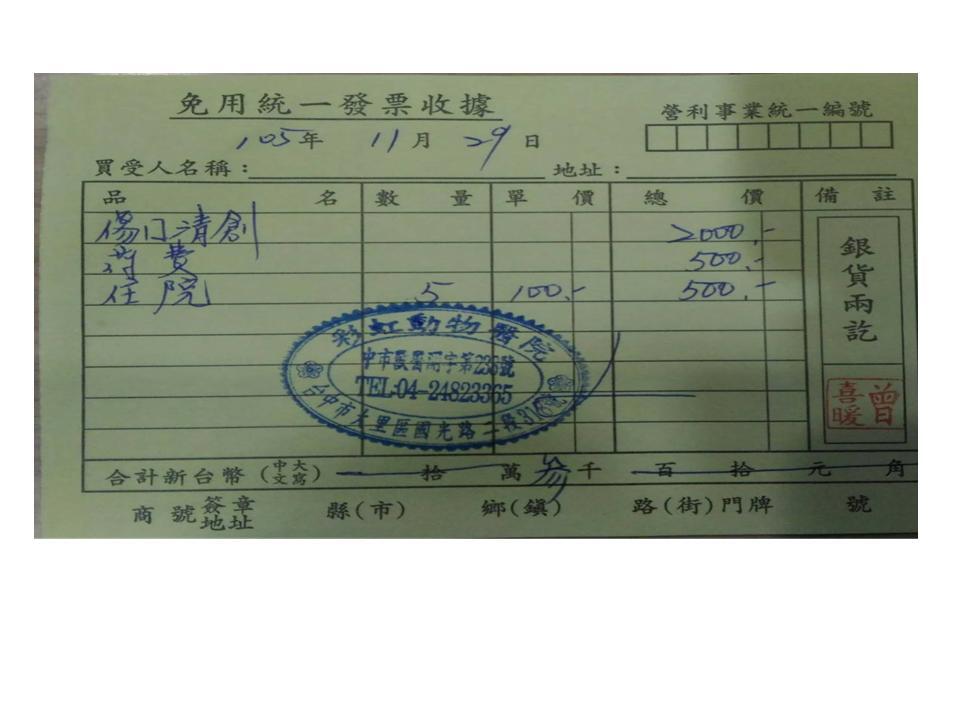 免用統一發票收據
營利事業統一編號
105年 11月 29日
買受人名稱： 地址：
品名 數量 單價 總價 備註
傷口清創 2000.-
費 500.-
住院 5 100.- 500.-
銀貨兩訖
彩虹動物醫院
TEL:04-24823365
台中市大里區國光路二段
曾喜暖
合計新台幣(中文大寫) 拾 萬 參千 百 拾 元 角
商號簽章地址 縣(市) 鄉(鎮) 路(街)門牌 號